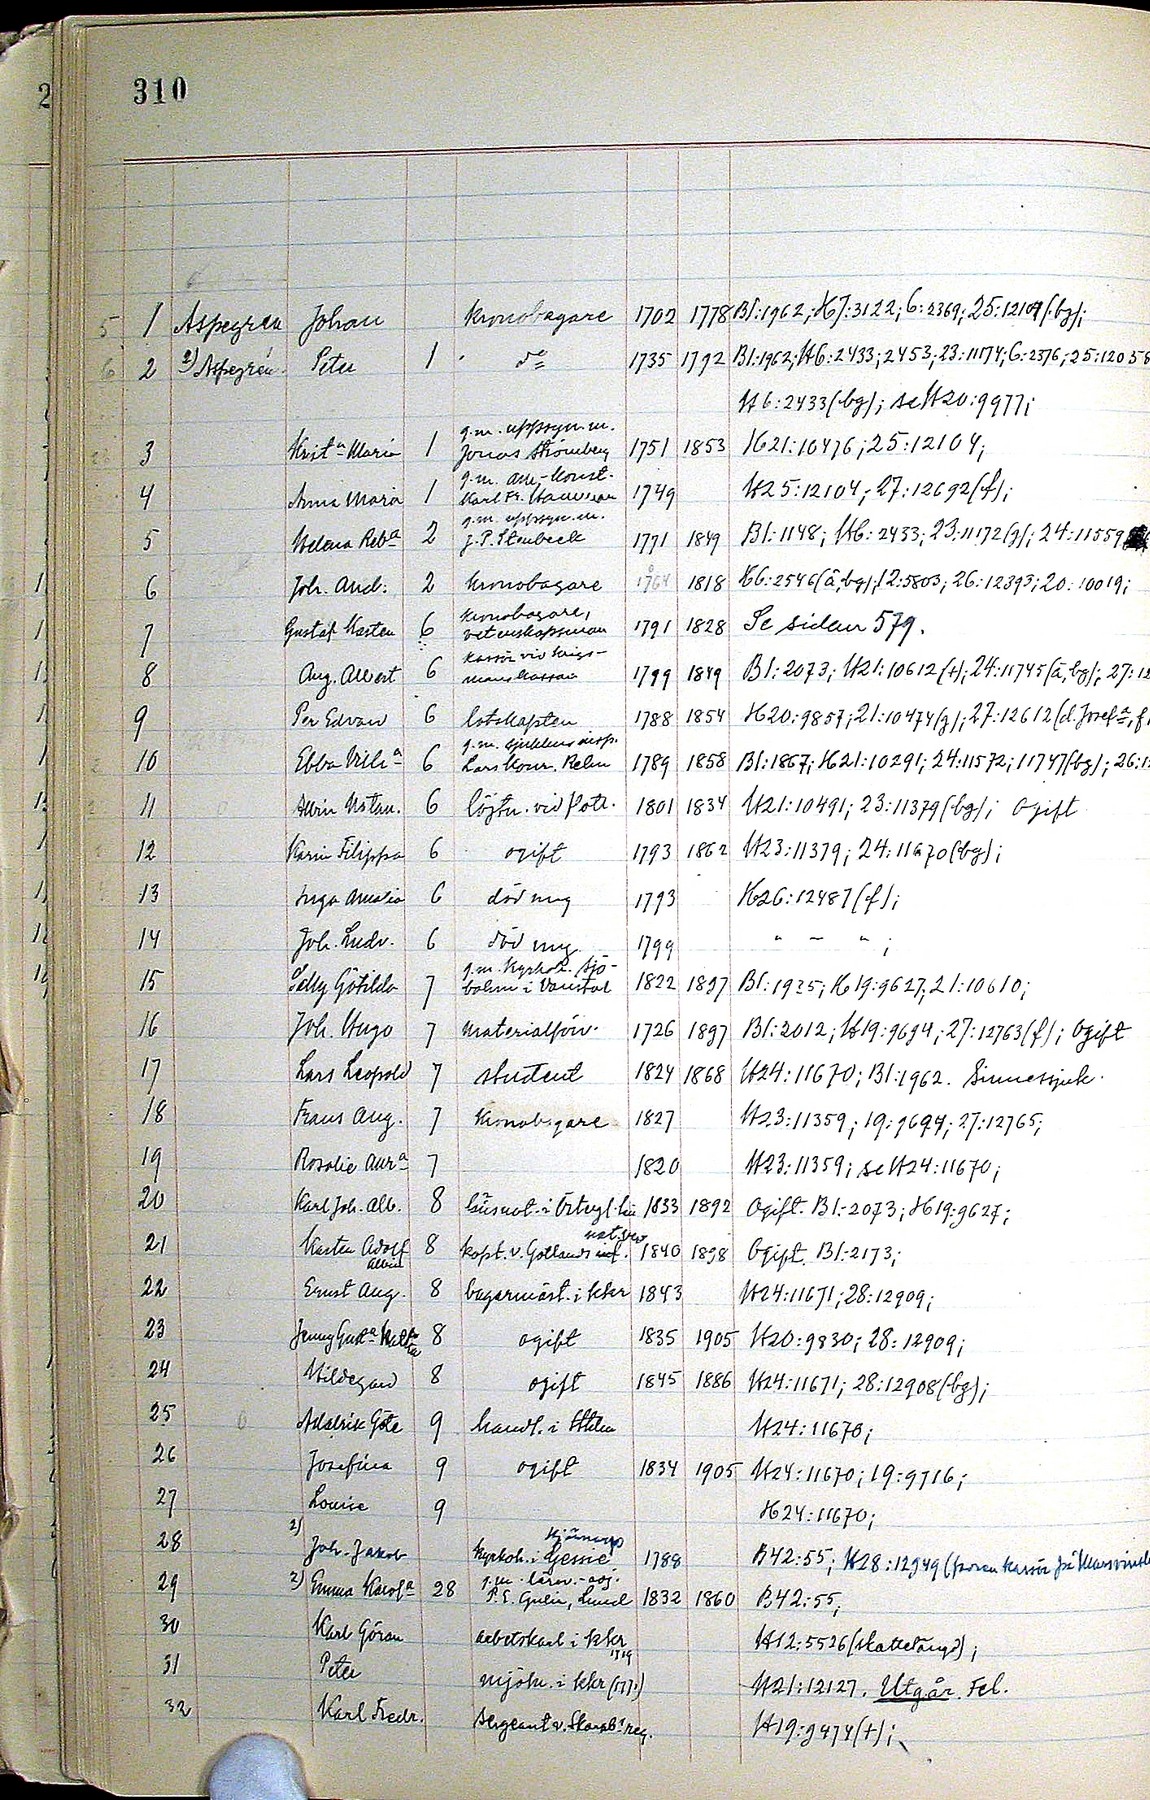 310
5 1 Aspegrén Johan kronobagare 1702 1778 Bl:1962; H7:3122; 6:2369; 25:12109(bg);
6 2 2) Aspegrén Peter 1 do 1735 1792 Bl:1962; H6:2433; 2453; 23:11174; 6:2376; 25:12058
H6:2433(bg); se H20:9977;
g.m. uppsyn.m.
3 Krist:a Maria 1 Jonas Strömberg 1751 1853 H21:10476; 25:12104;
4 Anna Maria 1 1749 H25:12104; 27:12692(f);
g.m. uppsyn.m.
5 Helena Reb:a 2 J.P. Stenbeck 1771 1849 Bl:1148; H6:2433; 23:11172(g); 24:11559
6 Joh. And: 2 kronobagare 1764 1818 H6:2546(ä,bg); 12:5803; 26:12393; 20:10019;
kronobagare,
7 Gustaf Karsten 6 vetenskapsman 1791 1828 Se sidan 579.
kassör vid krigs-
8 Aug. Albert 6 manskassan 1799 1849 Bl:2073; H21:10612(+); 24:11745(ä,bg); 27:12
9 Per Edvard 6 lotskapten 1788 1854 H20:9857; 21:10474(g); 27:12612(d.Josef:a, f.
10 Ebba Vilh:a 6 1789 1858 Bl:1867; H21:10291; 24:11572; 11747(bg); 26:12
11 Albin Natan. 6 löjtn. vid flott. 1801 1834 H21:10491; 23:11379(bg); Ogift
12 Karin Filippa 6 ogift 1793 1862 H23:11379; 24:11670(bg);
13 Inga Amalia 6 död ung 1793 H26:12487(f);
14 Joh. Ludv. 6 död ung 1799 " – " ;
g.m. kyrkoh. Sjö-
15 Selly Götilda 7 bohm i Vanstad 1822 1897 Bl:1925; H19:9627; 21:10610;
16 Joh. Hugo 7 materialförv. 1726 1897 Bl:2012; H19:9694; 27:12763(f); Ogift
17 Lars Leopold 7 student 1824 1868 H24:11670; Bl:1962. Sinnessjuk.
18 Frans Aug. 7 kronobagare 1827 H23:11359; 19:9694; 27:12765;
19 Rosalie Aur:a 7 1820 H23:11359; se H24:11670;
20 Karl Joh. Alb. 8 länsnot. i Östergl. län 1833 1892 Ogift. Bl:2073; H19:9627;
nat.bev
21 Karsten Adolf 8 kapt. v. Gotlands inf. 1840 1898 Ogift. Bl:2173;
Albin
22 Ernst Aug. 8 bagarmäst. i Kkr 1843 H24:11671; 28:12909;
23 Jenny Gust:a 8 ogift 1835 1905 H20:9830; 28:12909;
24 Hildegard 8 ogift 1845 1886 H24:11671; 28:12908(bg);
25 Adalrik Göte 9 handl. i Sthlm H24:11670;
26 Josefina 9 ogift 1834 1905 H24:11670; 19:9716;
27 Louise 9 H24:11670;
28 2) Joh. Jakob kyrkoh. i Gessie 1788 B42:55; H28:12949
g.m. lärov.-adj.
29 2) Emma Karol:a 28 Lund 1832 1860 B42:55;
30 Karl Göran arbetskarl i Kkr H12:5526(skattelängd);
1719
31 Peter mjöln. i Kkr H21:12127. Utgår. Fel.
32 Karl Fredr. sergeant v. Skarab:s reg. H19:9474(+);